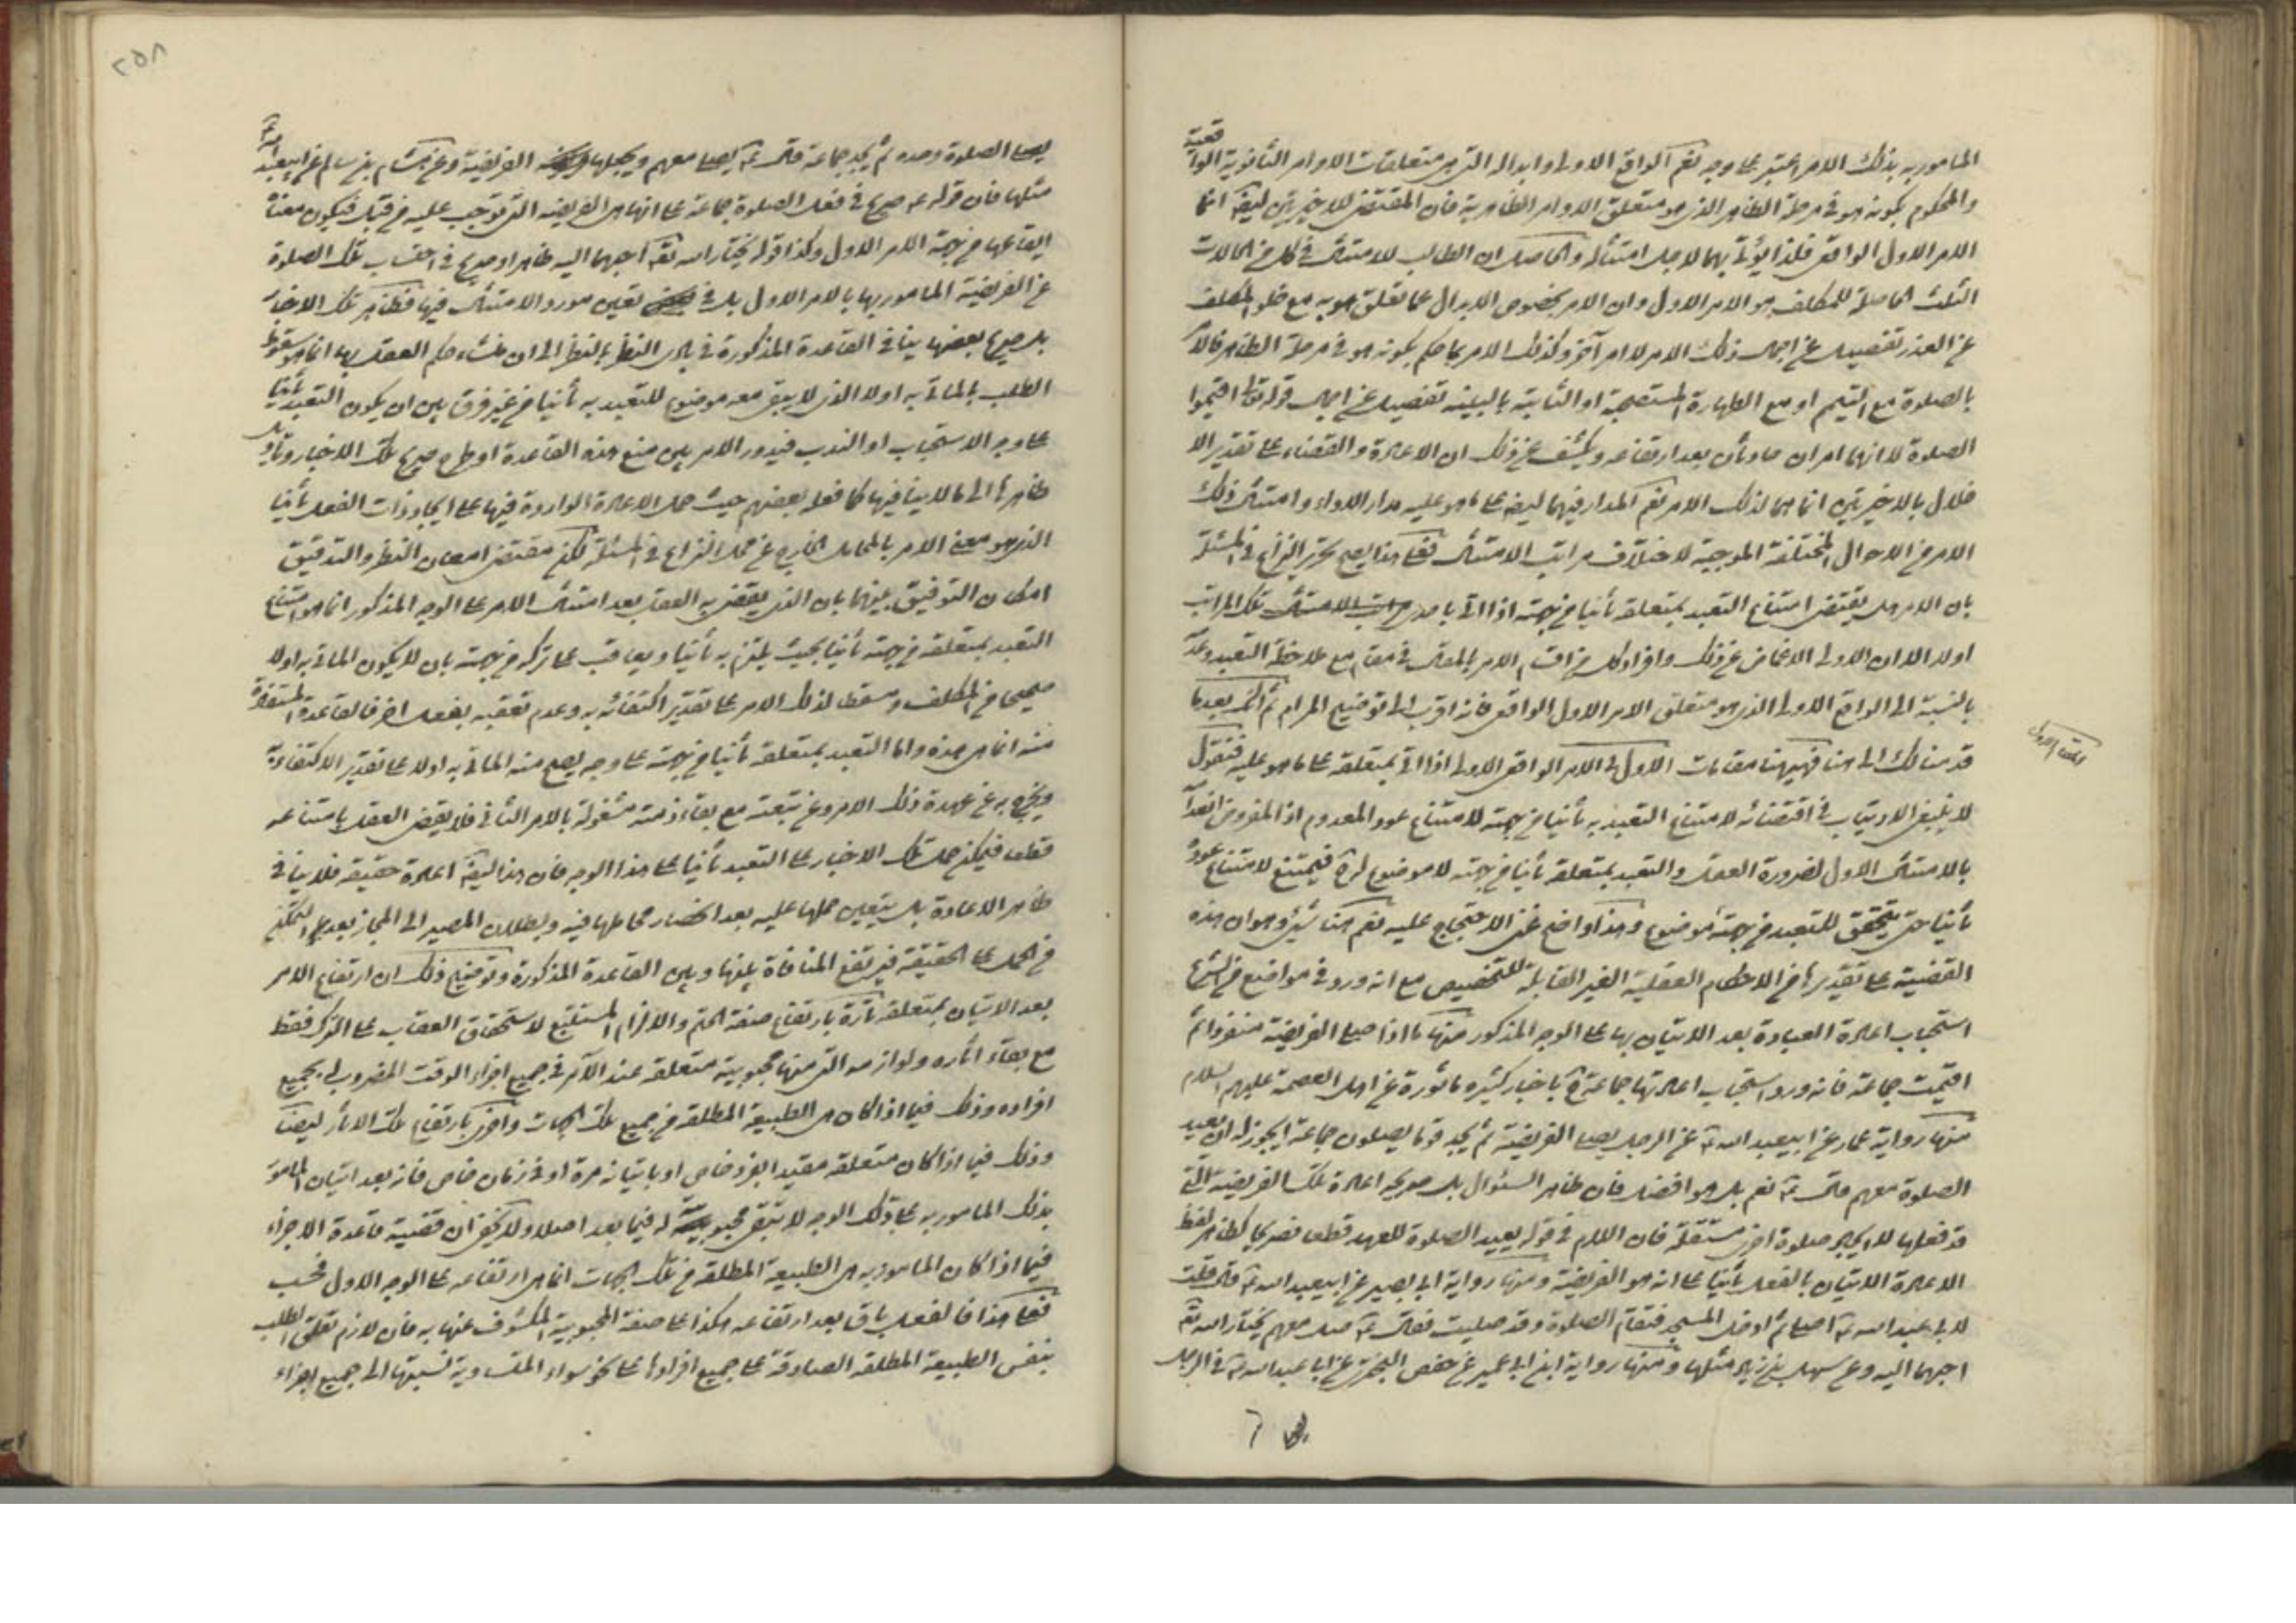 المامور به بذلك الامر معتبر على وجه نعم الواقع الاولى وابداله التى هى متعلقات الاوامر الثانوية الواقعية
والمحكوم بكونه هو فى مرحلة الظاهر الذى هو متعلق الاوامر الظاهرية فان المقتضى للاخيرتين ايضا انما
الامر الاول الواقعى فلذا يؤتى بهما لاجل امتثاله والحاصل ان الطالب للامتثال فى كل من الحالات
الثلث الحاصلة للمكلف هو الامر الاول وان الامر بخصوص الابدال عما تعلق هو به مع خلو المكلف
عن العذر تفصيل عن اجمال ذلك الامر لا امر آخر وكذلك الامر بما حكم بكونه هو فى مرحلة الظاهر فالامر
بالصلوة مع التيمم او مع الطهارة المستصحبة او الثابتة بالبينة تفصيل عن اجمال قوله تعالى اقيموا
الصلوة لا انهما امران حادثان بعد ارتفاعه ويكشف عن ذلك ان الاعادة والقضاء على تقدير الا
خلال بالاخيرتين انما هما لذلك الامر نعم المدار فيهما ايضا على ما هو عليه مدار الاداء وامتثال ذلك
الامر من الاحوال المختلفة الموجبة لاختلاف مراتب الامتثال فعلى هذا يصح تحرير النزاع فى المسئلة
بان الامر هل يقتضى امتناع التعبد بمتعلقه ثانيا من جهته اذا اتى باحدى مراتب الامتثال تلك المراتب
اولا الا ان الاولى الاغماض عن ذلك وافراد كل من اقسام الامر بالمقال فى مقام مع ملاحظة التعبد وعدمه
بالنسبة الى الواقع الاولى الذى هو متعلق الامر الاول الواقعى فانه اقرب الى توضيح المرام ثم انك بعد ما
قدمنا لك الى هنا فهيهنا مقامات الاول فى الامر الواقعى الاولى اذا اتى بمتعلقه على ما هو عليه فنقول
المقام الاول
لا ينبغى الارتياب فى اقتضائه لامتناع التعبد به ثانيا من جهته لامتناع عود المعدوم اذ المفروض انعدامه
بالامتثال الاول لضرورة العقل والتعبد بمتعلقه ثانيا من جهته لا موضوع له فيمتنع لامتناع عوده
ثانيا حتى يتحقق للتعبد من جهته موضوع وهذا واضح غنى الاحتجاج عليه نعم هنا شىء وهو ان هذه
القضية على تقديرها من الاحكام العقلية الغير القابلة للتخصيص مع انه ورد فى مواضع من الشرع
استحباب اعادة العبادة بعد الاتيان بها على الوجه المذكور منها ما اذا صلى الفريضة منفردا ثم
اقيمت جماعة فانه ورد استحباب اعادتها جماعة باخبار كثيره ماثورة عن اهل العصمة عليهم السلام
منها رواية عمار عن ابيعبد الله ع عن الرجل يصلى الفريضة ثم يجد قوما يصلون جماعة ايجوز له ان يعيد
الصلوة معهم قال ع نعم بل هو افضل فان ظاهر السئوال بل صريحه اعادة تلك الفريضة التى
قد فعلها لا ايجاد صلوة اخرى مستقلة فان اللام فى قوله يعيد الصلوة للعهد قطعا فصريح كظاهر لفظ
الاعادة الاتيان بالفعل ثانيا على انه هو الفريضة ومنها رواية ابى بصير عن ابيعبد الله ع قال قلت
لابى عبد الله ع اصلى ثم ادخل المسجد فتقام الصلوة وقد صليت فقال ع صل معهم يختار الله تع
احبهما اليه وعن سهل بن زياد مثلها ومنها رواية ابن ابى عمير عن حفص البخترى عن ابا عبد الله ع فى الرجل
يصلى
٢٥٨
يصلى الصلوة وحده ثم يجد جماعة قال ع يصلى معهم ويجعلها الفريضة وعن هشام بن سالم عن ابيعبد الله ع
مثلها فان قوله ع صريح فى فعل الصلوة جماعة على انها هى الفريضة التى توجب عليه من قبل فيكون معناه
ايقاعها من جهة الامر الاول وكذا قوله يختار الله تع احبهما اليه ظاهر او صريح فى احتساب تلك الصلوة
عن الفريضة المامور بها بالامر الاول بل فى تعين مورد الامتثال فيها فظاهر تلك الاخبار
بل صريح بعضها ينافى القاعدة المذكورة فى بادى النظر بالنظر الى ان منشاء حكم العقل بها انما هو سقوط
الطلب بالماتى به اولا الذى لا يبقى معه موضوع للتعبد به ثانيا من غير فرق بين ان يكون التعبد ثانيا
على وجه الاستحباب او الندب فيدور الامر بين منع هذه القاعدة او طرح صريح تلك الاخبار وتاويل
ظاهرها الى ما لا ينافيها كما فعله بعضهم حيث حمل الاعادة الواردة فيها على ايجاد ذات الفعل ثانيا
الذى هو معنى الامر بالمحال الخارج عن محل النزاع فى المسئلة لكن مقتضى امعان النظر والتدقيق
امكان التوفيق بينهما بان الذى يقضى به العقل بعد امتثال الامر على الوجه المذكور انما هو امتناع
التعبد بمتعلقه من جهته ثانيا بحيث يلتزم به ثانيا ويعاقب على تركه من جهته بان لا يكون الماتى به اولا
صحيحا من المكلف ومسقطا لذلك الامر على تقدير اكتفائه به وعدم تعقبه بفعل اخر فالقاعدة المستفادة
منه انما هى هذه واما التعبد بمتعلقه ثانيا من جهته على وجه يصح منه الماتى به اولا على تقدير الاكتفاء به
ويخرج به عن عهدة ذلك الامر وعن تبعته مع بقاء ذمته مشغولة بالامر الثانى فلا يقضى العقل بامتناعه
قطعا فيمكن حمل تلك الاخبار على التعبد ثانيا على هذا الوجه فان هذا ايضا اعادة حقيقة فلا ينافى
ظاهر الاعادة بل يتعين حملها عليه بعد انحصار محاملها فيه وبطلان المصير الى المجاز بعد التمكن
من الحمل على الحقيقة فيرتفع المنافاة بينها وبين القاعدة المذكورة وتوضيح ذلك ان ارتفاع الامر
بعد الاتيان بمتعلقه تارة بارتفاع صفة الحتم والالزام المستتبع لاستحقاق العقاب على الترك فقط
مع بقاء اثاره ولوازمه التى منها محبوبية متعلقه عند الآمر فى جميع اجزاء الوقت المضروب له بجميع
افراده وذلك فيما اذا كان هى الطبيعة المطلقة من جميع تلك الجهات واخرى بارتفاع تلك الاثار ايضا
وذلك فيما اذا كان متعلقه مقيدا بفرد خاص او باتيانه مرة او فى زمان خاص فانه بعد اتيان المامور
بذلك المامور به على ذلك الوجه لا يبقى محبوبية له فيما بعد اصلا ولا يخفى ان قضية قاعدة الاجزاء
فيما اذا كان المامور به هى الطبيعة المطلقة من تلك الجهات انما هى ارتفاعه على الوجه الاول فحسب
فعلى هذا فالفعل باق بعد ارتفاعه هكذا على صفة المحبوبية المكشوف عنها به فان لازم تعلق الطلب
بنفس الطبيعة المطلقة الصادقة على جميع افرادها على نحو سواء المتساوية نسبتها الى جميع اجزاء